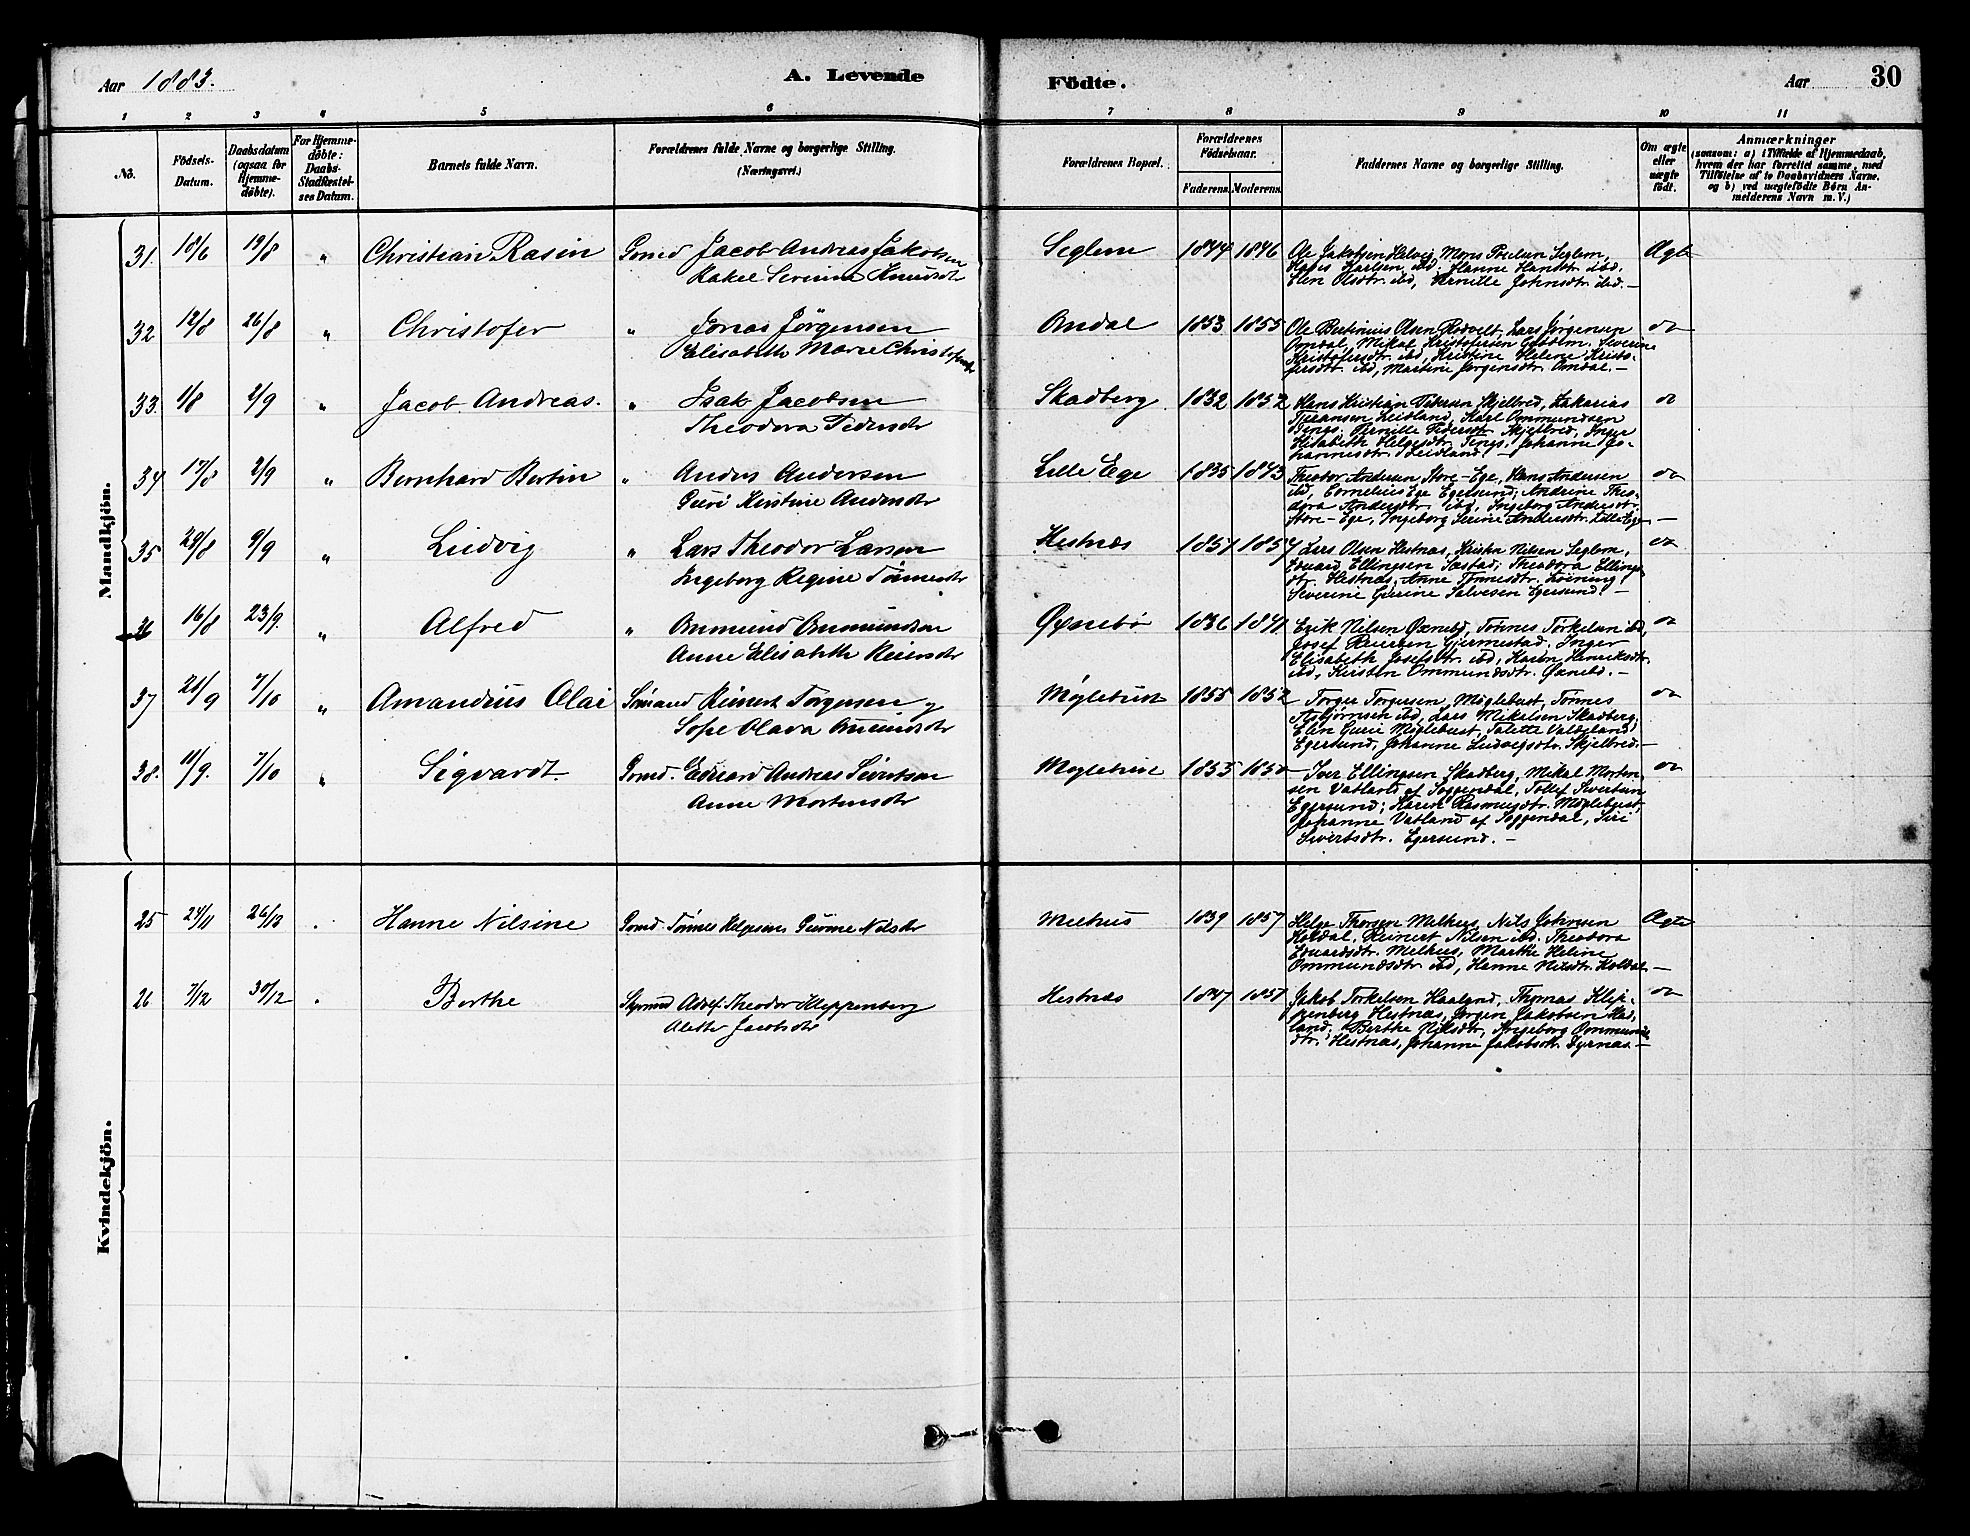 Aar 1883.
A. Levende
Födte.
Aar
30
1 2 3 4 5 6 7 8 9 10 11
No.
Födsels-Datum.
Daabsdatum (ogsaa for Hjemme-döbte).
For Hjemme-döbte: Daabs-Stadfæstel-ses Datum.
Barnets fulde Navn.
Forældrenes fulde Navne og borgerlige Stilling. (Næringsvei.)
Forældrenes Bopæl.
Forældrenes Födselsaar.
Faderens. Moderens.
Faddernes Navne og borgerlige Stilling.
Om ægte eller uægte födt.
Anmærkninger
(saasom: a) i Tilfælde af Hjemmedaab,
hvem der har forrettet samme, med
Tilföielse af to Daabsvidners Navne,
og b) ved uægtefödte Börn An-
melderens Navn m. V.)
Mandkjön.
31 18/6 19/8 " Christian Rasin Gmd Jacob Andreas Jakobsen
Rakel Serine Knudsdtr
Seglem 1844 1846
Ole Jakobsen Helvig, Mons Poulsen Seglem,
Hans Karlsen ibd; Hanne Hansdtr ibd.
Elen Olsdtr. ibd, Pernille Johnsdtr. ibd. —
Ægte
32 12/8 26/8 " Christofer " Jonas Jörgensen
Elisabeth Marie Christofersdtr
Omdal 1853 1855
Ole Bertinius Olsen Rodvelt, Lars Jörgensen
Omdal, Mikal Kristofersen; Severine
Kristofersdtr. ibd, Kristine Helene Kristo-
fersdtr. ibd, Martine Jörgensdtr. Omdal. —
do
33 1/8 2/9 " Jacob Andreas. " Isak Jacobsen
Theodora Pedersdtr
Skadberg 1832 1852
Hans Kristian Pedersen Skjelbred, Zakarias
Leidland, Karl Ommundsen
Tengs; Pernille Pedersdtr. Skjelbred, Inger
Elisabeth Helgesdtr. Tengs, Johanne Jo-
hannesdtr. Leidland. —
do
34 17/8 2/9 " Bernhard Bertin " Anders Andersen
Guri Kirstine Andersdtr
Lille Ege 1835 1843
Theodor Andersen Store-Ege, Hans Andersen
ibd, Cornelius Ege Egersund; Andrine Theo-
dora Andersdtr ibd, Ingeborg Andersdtr.
Store-Ege, Ingeborg Serine Andersdtr. Lille Ege —
do
35 29/8 9/9 " Ludvig " Lars Theodor Larsen
Ingeborg Regine Tönnesdtr
Hestnæs 1851 1857
Lars Olsen Hestnæs, Kristen Nilsen Seglem,
Eduard Ellingsen; Theodora Ellings-
dtr. Hestnæs, Anne Tönnesdtr.
Severine Gurine Salvesen Egersund. —
do
36 16/8 23/9. " Alfred " Ommund Ommundsen
Anne Elisabeth Reiersdtr
Øxnebö 1836 1841
Erik Nilsen Øxnebö, Tönnes Torkelsen ibd,
Josef Reiersen Gjermestad, Inger
Elisabeth Josefsdtr. ibd, Karen Henriksdtr.
ibd, Kirsten Ommundsdtr. Øxnebö. —
do
37 21/9 7/10 " Amandius Olai Sömand Reinert Torgersen
Sofie Olava Ommundsdtr
Möglebust 1855 1852
Torger Torgersen Möglebust, Tönnes
Asbjörnsen ibd, Lars Mikalsen Skadberg;
Elen Gurie Möglebust, Talette
Egersund, Johanne Ludvigsdtr. Skjelbred. —
do
38. 11/9. 7/10 " Sigvardt Gmd. Edvard Andreas Sivertsen
Anne Mortensdtr
Möglebust 1853 1850
Iver Ellingsen Skadberg, Mikal Morten-
sen Vatland af Soggendal, Tollef Sivertsen
Egersund; Karen Rasmusdtr. Möglebust,
Johanne Vatland af Soggendal, Siri
Sivertsdtr. Egersund. —
do
Kvindekjön.
25 24/11 26/12 Hanne Nilsine Gmd Tönnes Helgesen Gurine Nilsdtr
Melhus 1839 1857
Helge Thorsen Melhus, Nils Johnsen
Koldal, Reinert Nilsen ibd. Theodora
Eduardsdtr. Melhus, Marthe Heline
Ommundsdtr ibd, Hanne Nilsdtr. Koldal —
Ægte
26 7/12 30/12 Berthe Styrmd Adolf Theodor Kleppenberg
Alette Jacobsdtr
Hestnæs 1847 1857
Jakob Torkelsen Haaland, Thomas Klep-
penberg Hestnæs, Jörgen Jakobsen
Berthe Nilsdtr, Ingeborg Ommunds-
dtr. Hestnæs, Johanne Jakobsdtr. —
do